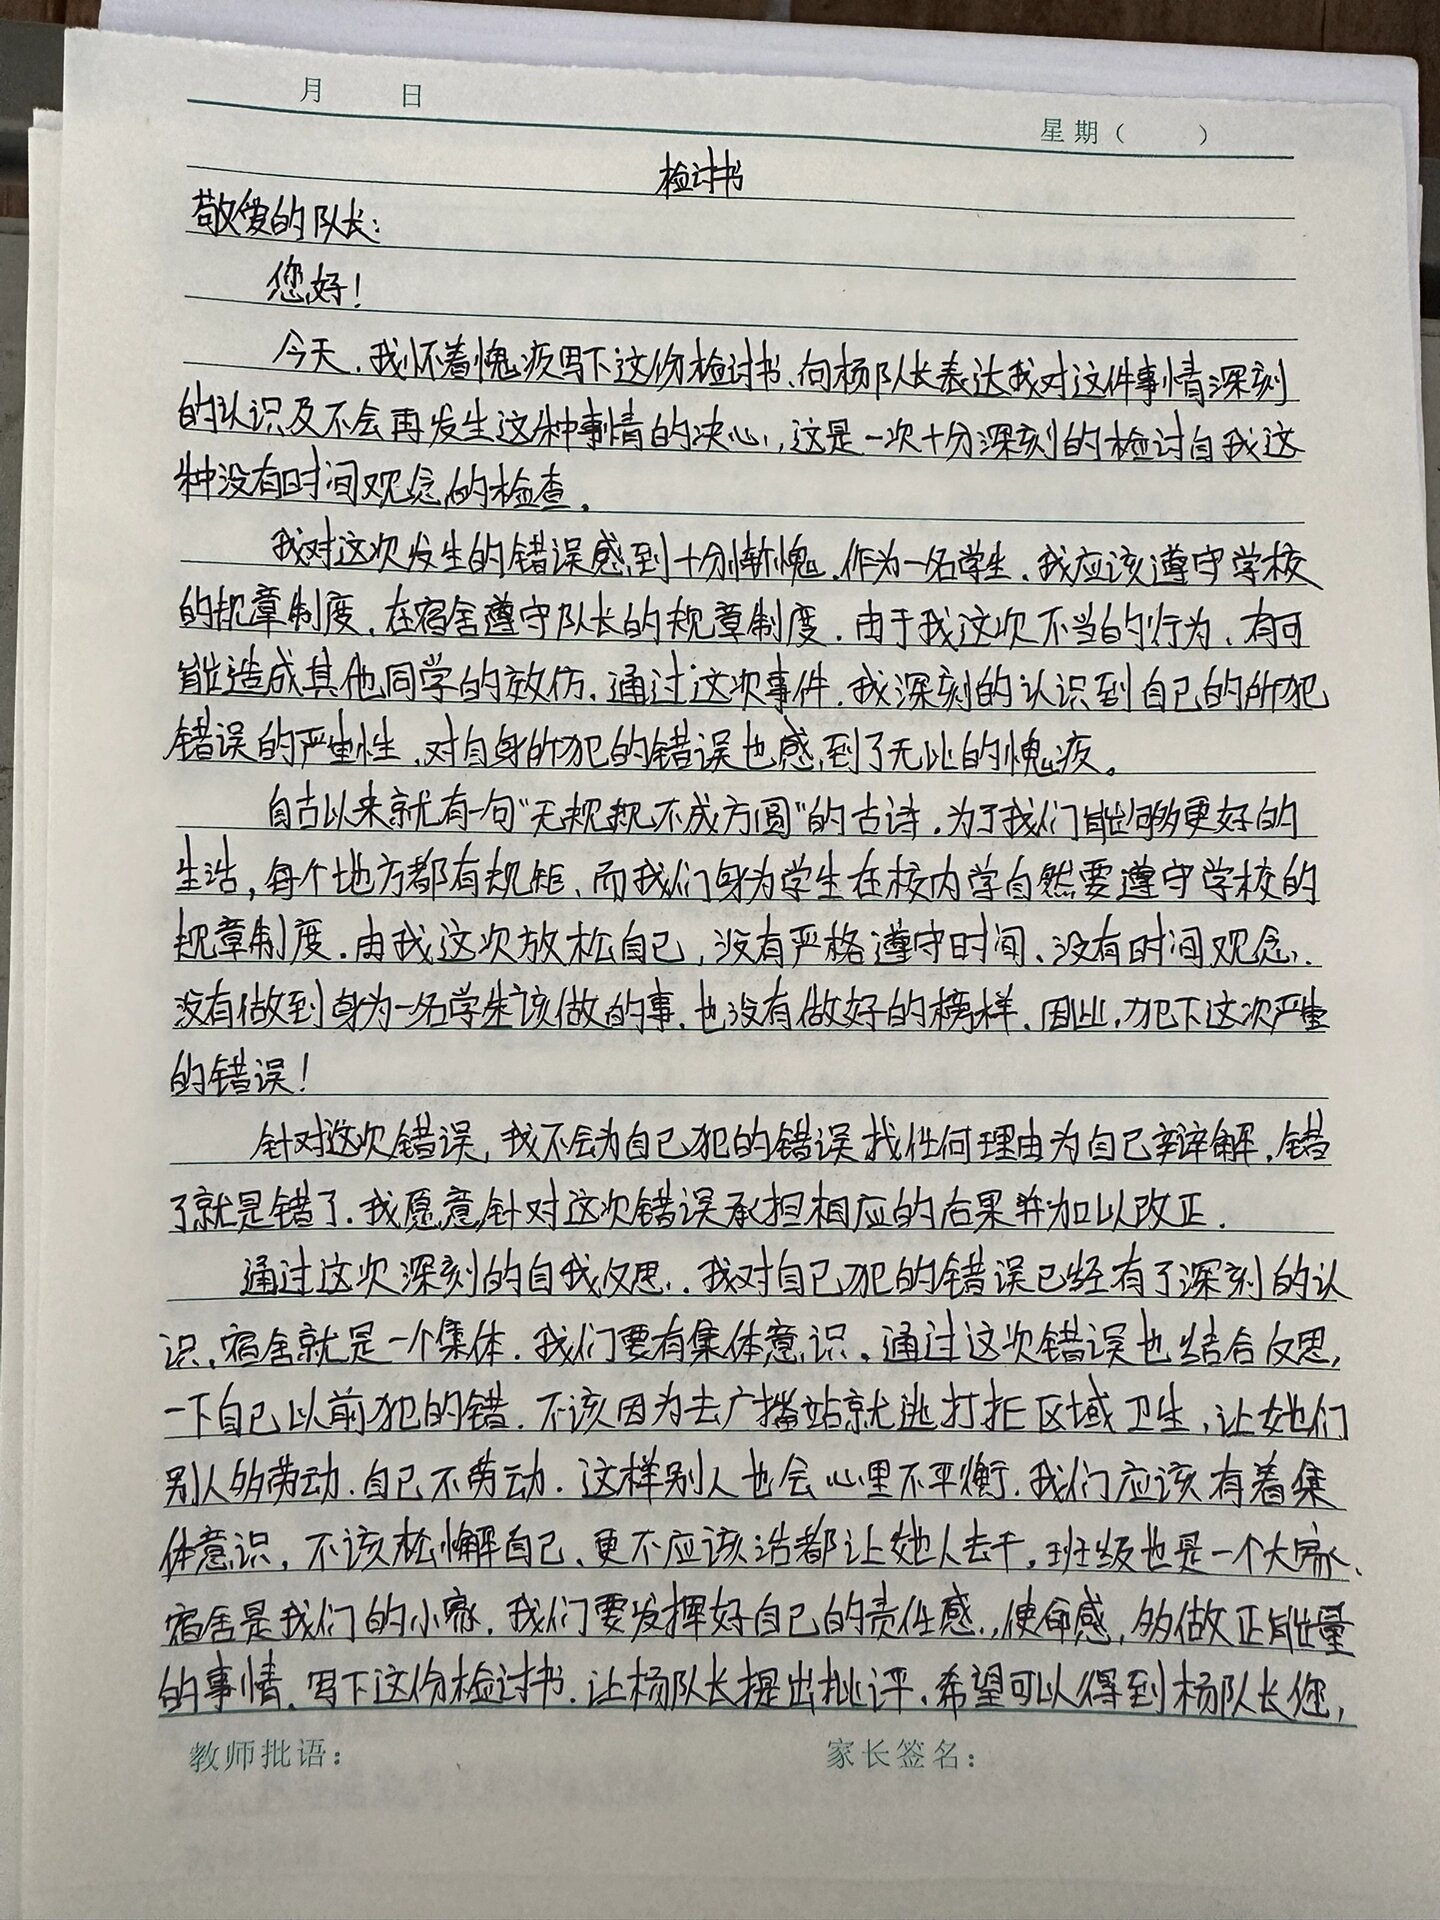 月 日
星期( )
检讨书
敬爱的队长:
您好!
今天,我怀着愧疚写下这份检讨书、向杨队长表达我对这件事情深刻
的认识及不会再发生这种事情的决心,这是一次十分深刻的检讨自我这
种没有时间观念的检查。
我对这次发生的错误感到十分惭愧,作为一名学生,我应该遵守学校
的规章制度,在宿舍遵守队长的规章制度,由于我这次不当的行为、有可
能造成其他同学的效仿,通过这次事件,我深刻的认识到自己的所犯
错误的严重性,对自身所犯的错误也感到了无比的愧疚。
自古以来就有一句“无规规不成方圆”的古诗,为了我们能够更好的
生活,每个地方都有规矩、而我们身为学生在校内学自然要遵守学校的
规章制度,由我这次放松自己,没有严格遵守时间、没有时间观念,
没有做到身为一名学生该做的事,也没有做好的榜样,因此,犯下这次严重
的错误!
针对这次错误,我不会为自己犯的错误找任何理由为自己辩解,错
了就是错了,我愿意针对这次错误承担相应的后果并加以改正.
通过这次深刻的自我反思,我对自己犯的错误已经有了深刻的认
识,宿舍就是一个集体,我们要有集体意识,通过这次错误也结合反思,
一下自己以前犯的错,不该因为去广播站就逃打扫区域卫生,让她们
别人多劳动,自己不劳动,这样别人也会心里不平衡,我们应该有着集
体意识,不该松懈自己、更不应该活都让她人去干,班级也是一个大家、
宿舍是我们的小家,我们要发挥好自己的责任感,使命感,多做正能量
的事情,写下这份检讨书,让杨队长提出批评、希望可以得到杨队长您,
教师批语:
家长签名: